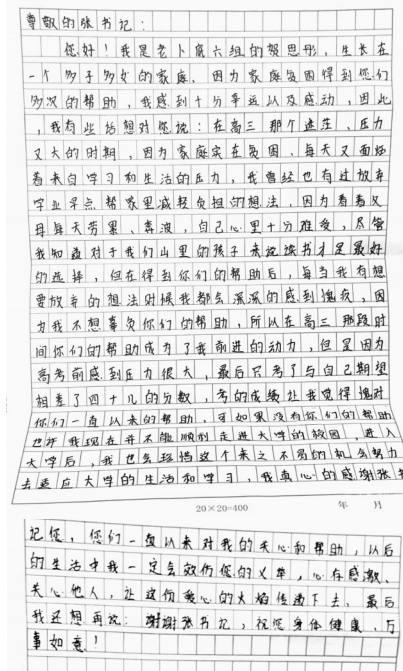 尊敬的张书记：
您好！我是老卜底六组的贺思彤，生长在
一个多子多女的家庭，因为家庭贫困得到您们
多次的帮助，我感到十分幸运以及感动，因此
，我有些话想对您说：在高三那个迷茫、压力
又大的时期，因为家庭实在贫困、每天又面临
着来自学习和生活的压力，我曾经也有过放弃
学业早点帮家里减轻负担的想法，因为看着父
母每天劳累、奔波，自己心里十分难受，尽管
我知道对于我们山里的孩子来说读书才是最好
的选择，但在得到你们的帮助后，每当我有想
要放弃的想法时候我都会深深的感到愧疚，因
为我不想辜负你们的帮助，所以在高三那段时
间你们的帮助成为了我前进的动力，但是因为
高考前感到压力很大，最后只考了与自己期望
相差了四十几的分数，考的成绩让我觉得愧对
你们一直以来的帮助，可如果没有你们的帮助
也许我现在并不能顺利走进大学的校园，进入
大学后，我也会珍惜这个来之不易的机会努力
去适应大学的生活和学习，我真心的感谢张书
20×20=400 年 月
记您，您们一直以来对我的关心和帮助，以后
的生活中我一定会效仿您的义举，心存感激、
关心他人，让这份爱心的火焰传递下去，最后
我还想再说：谢谢张书记，祝您身体健康，万
事如意！